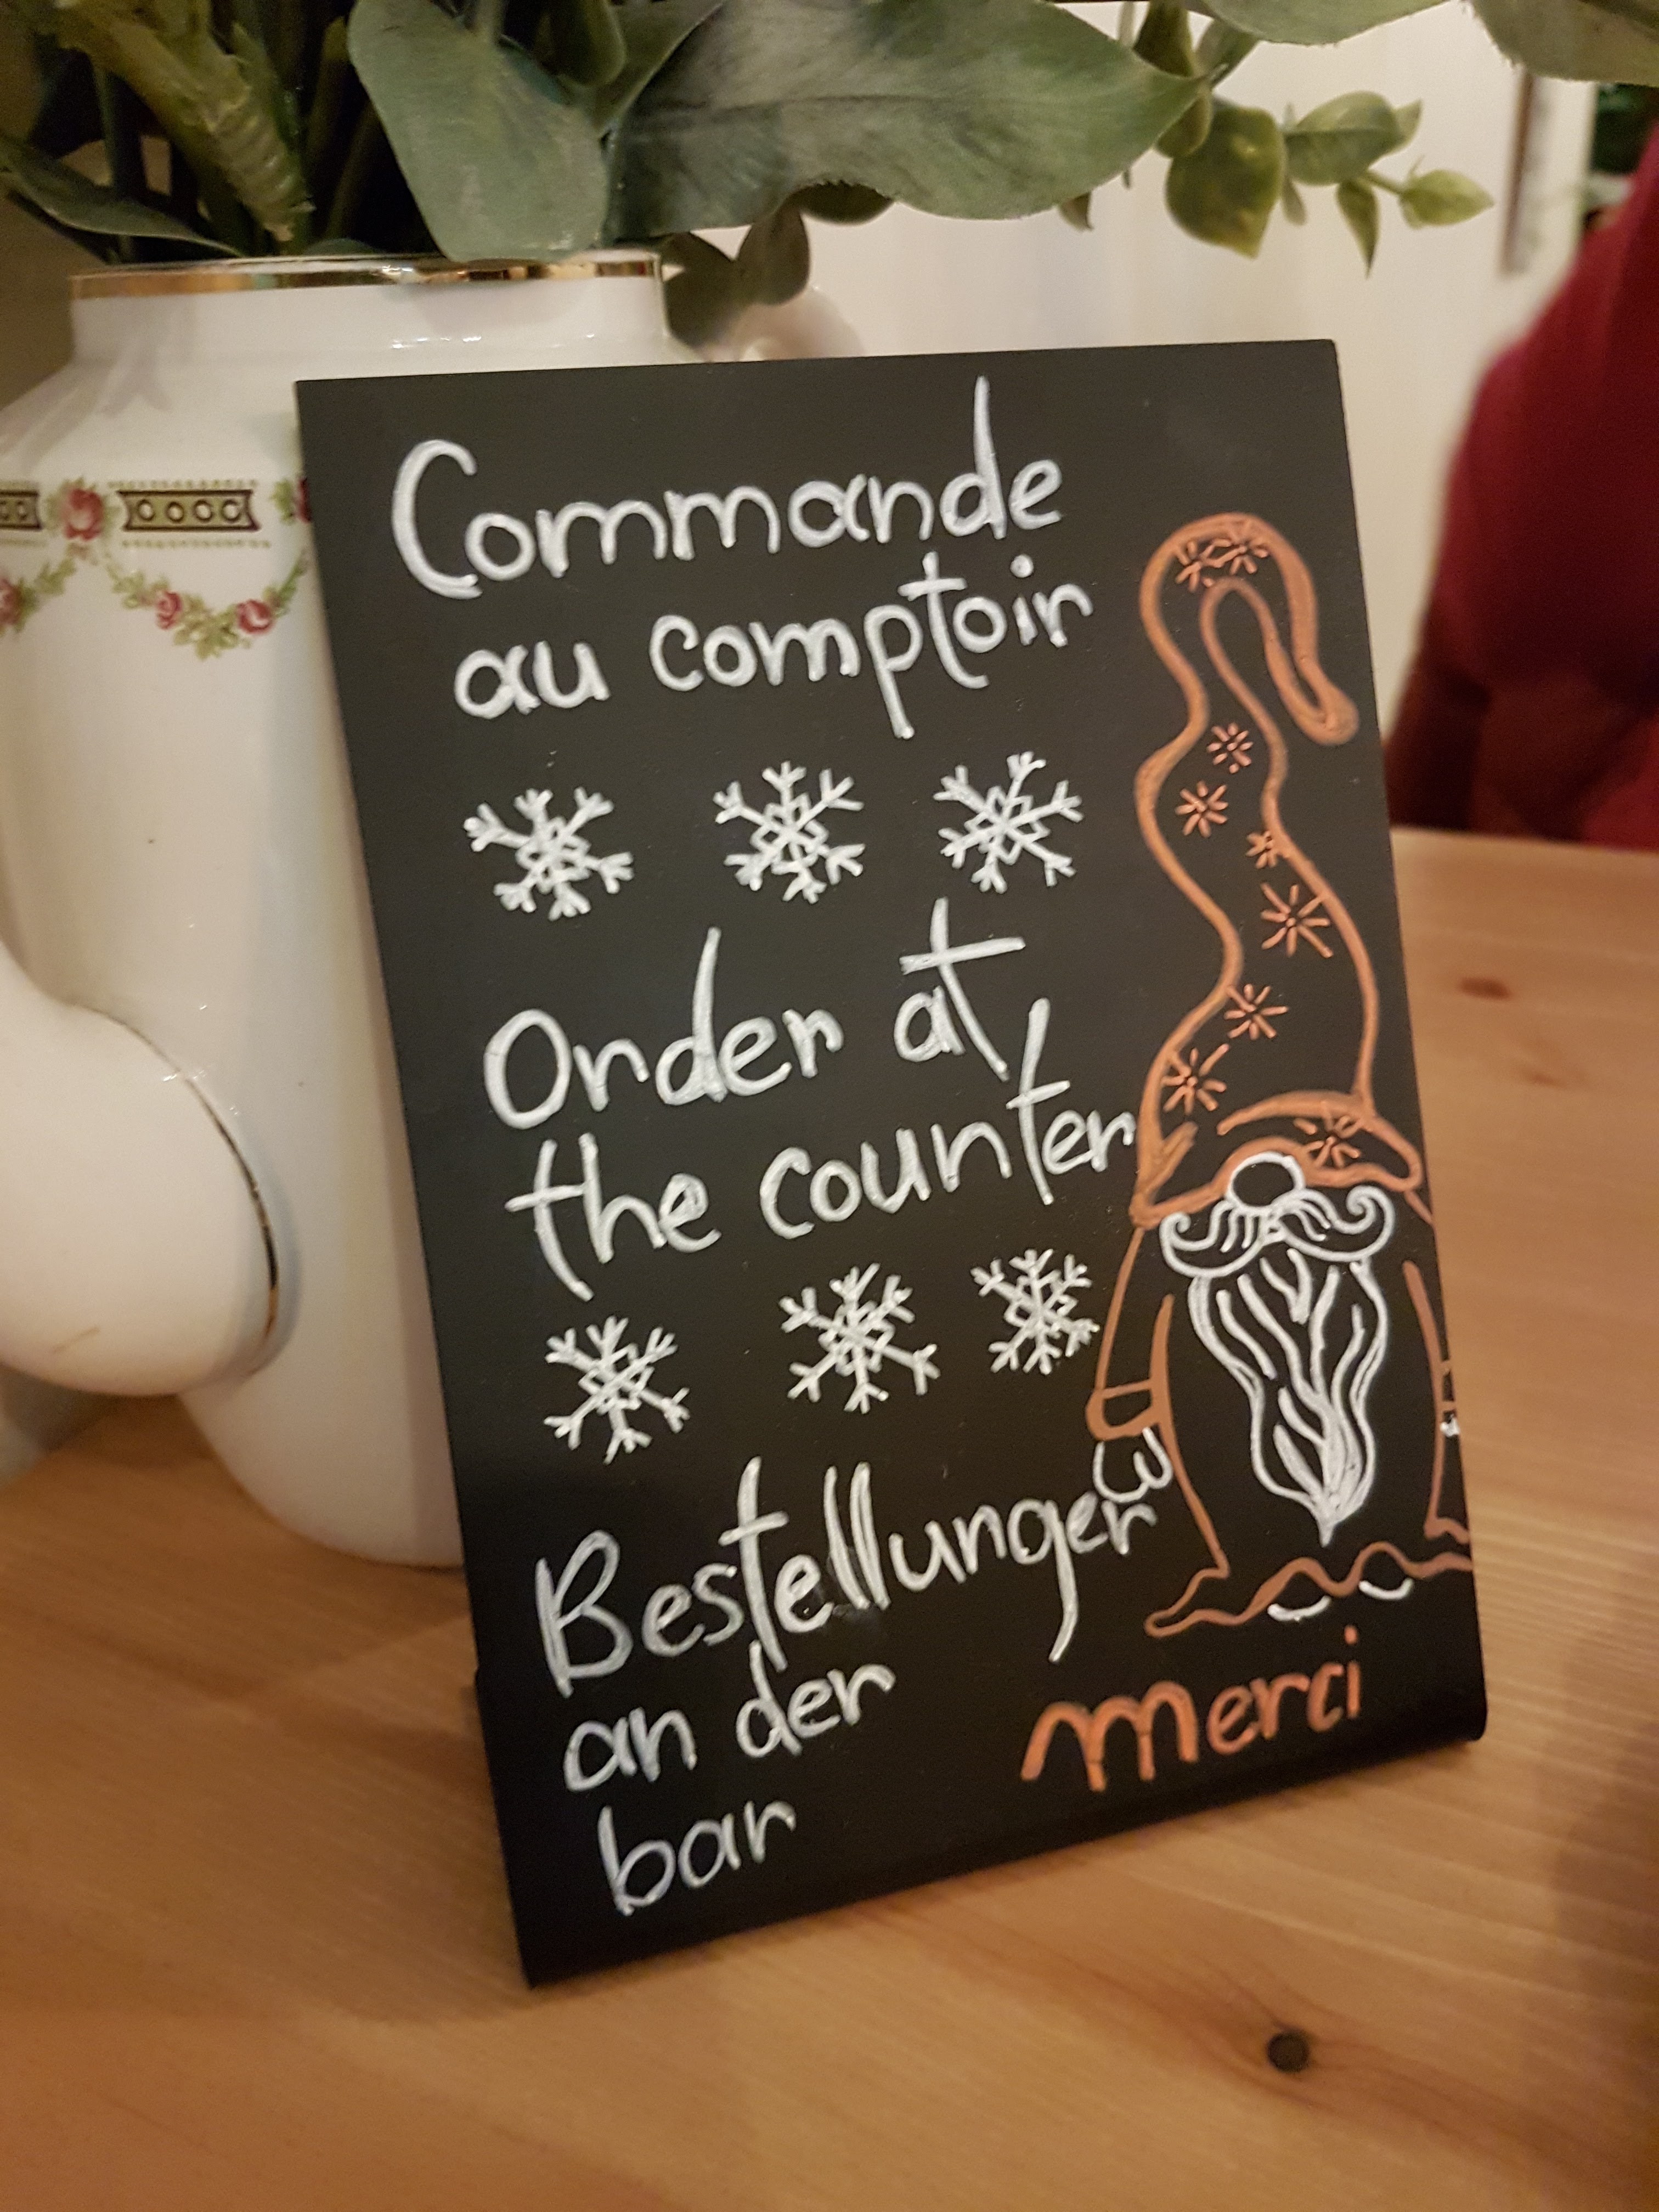 Commande
au comptoir
Order at
the counter
Bestellungen
an der
bar
merci